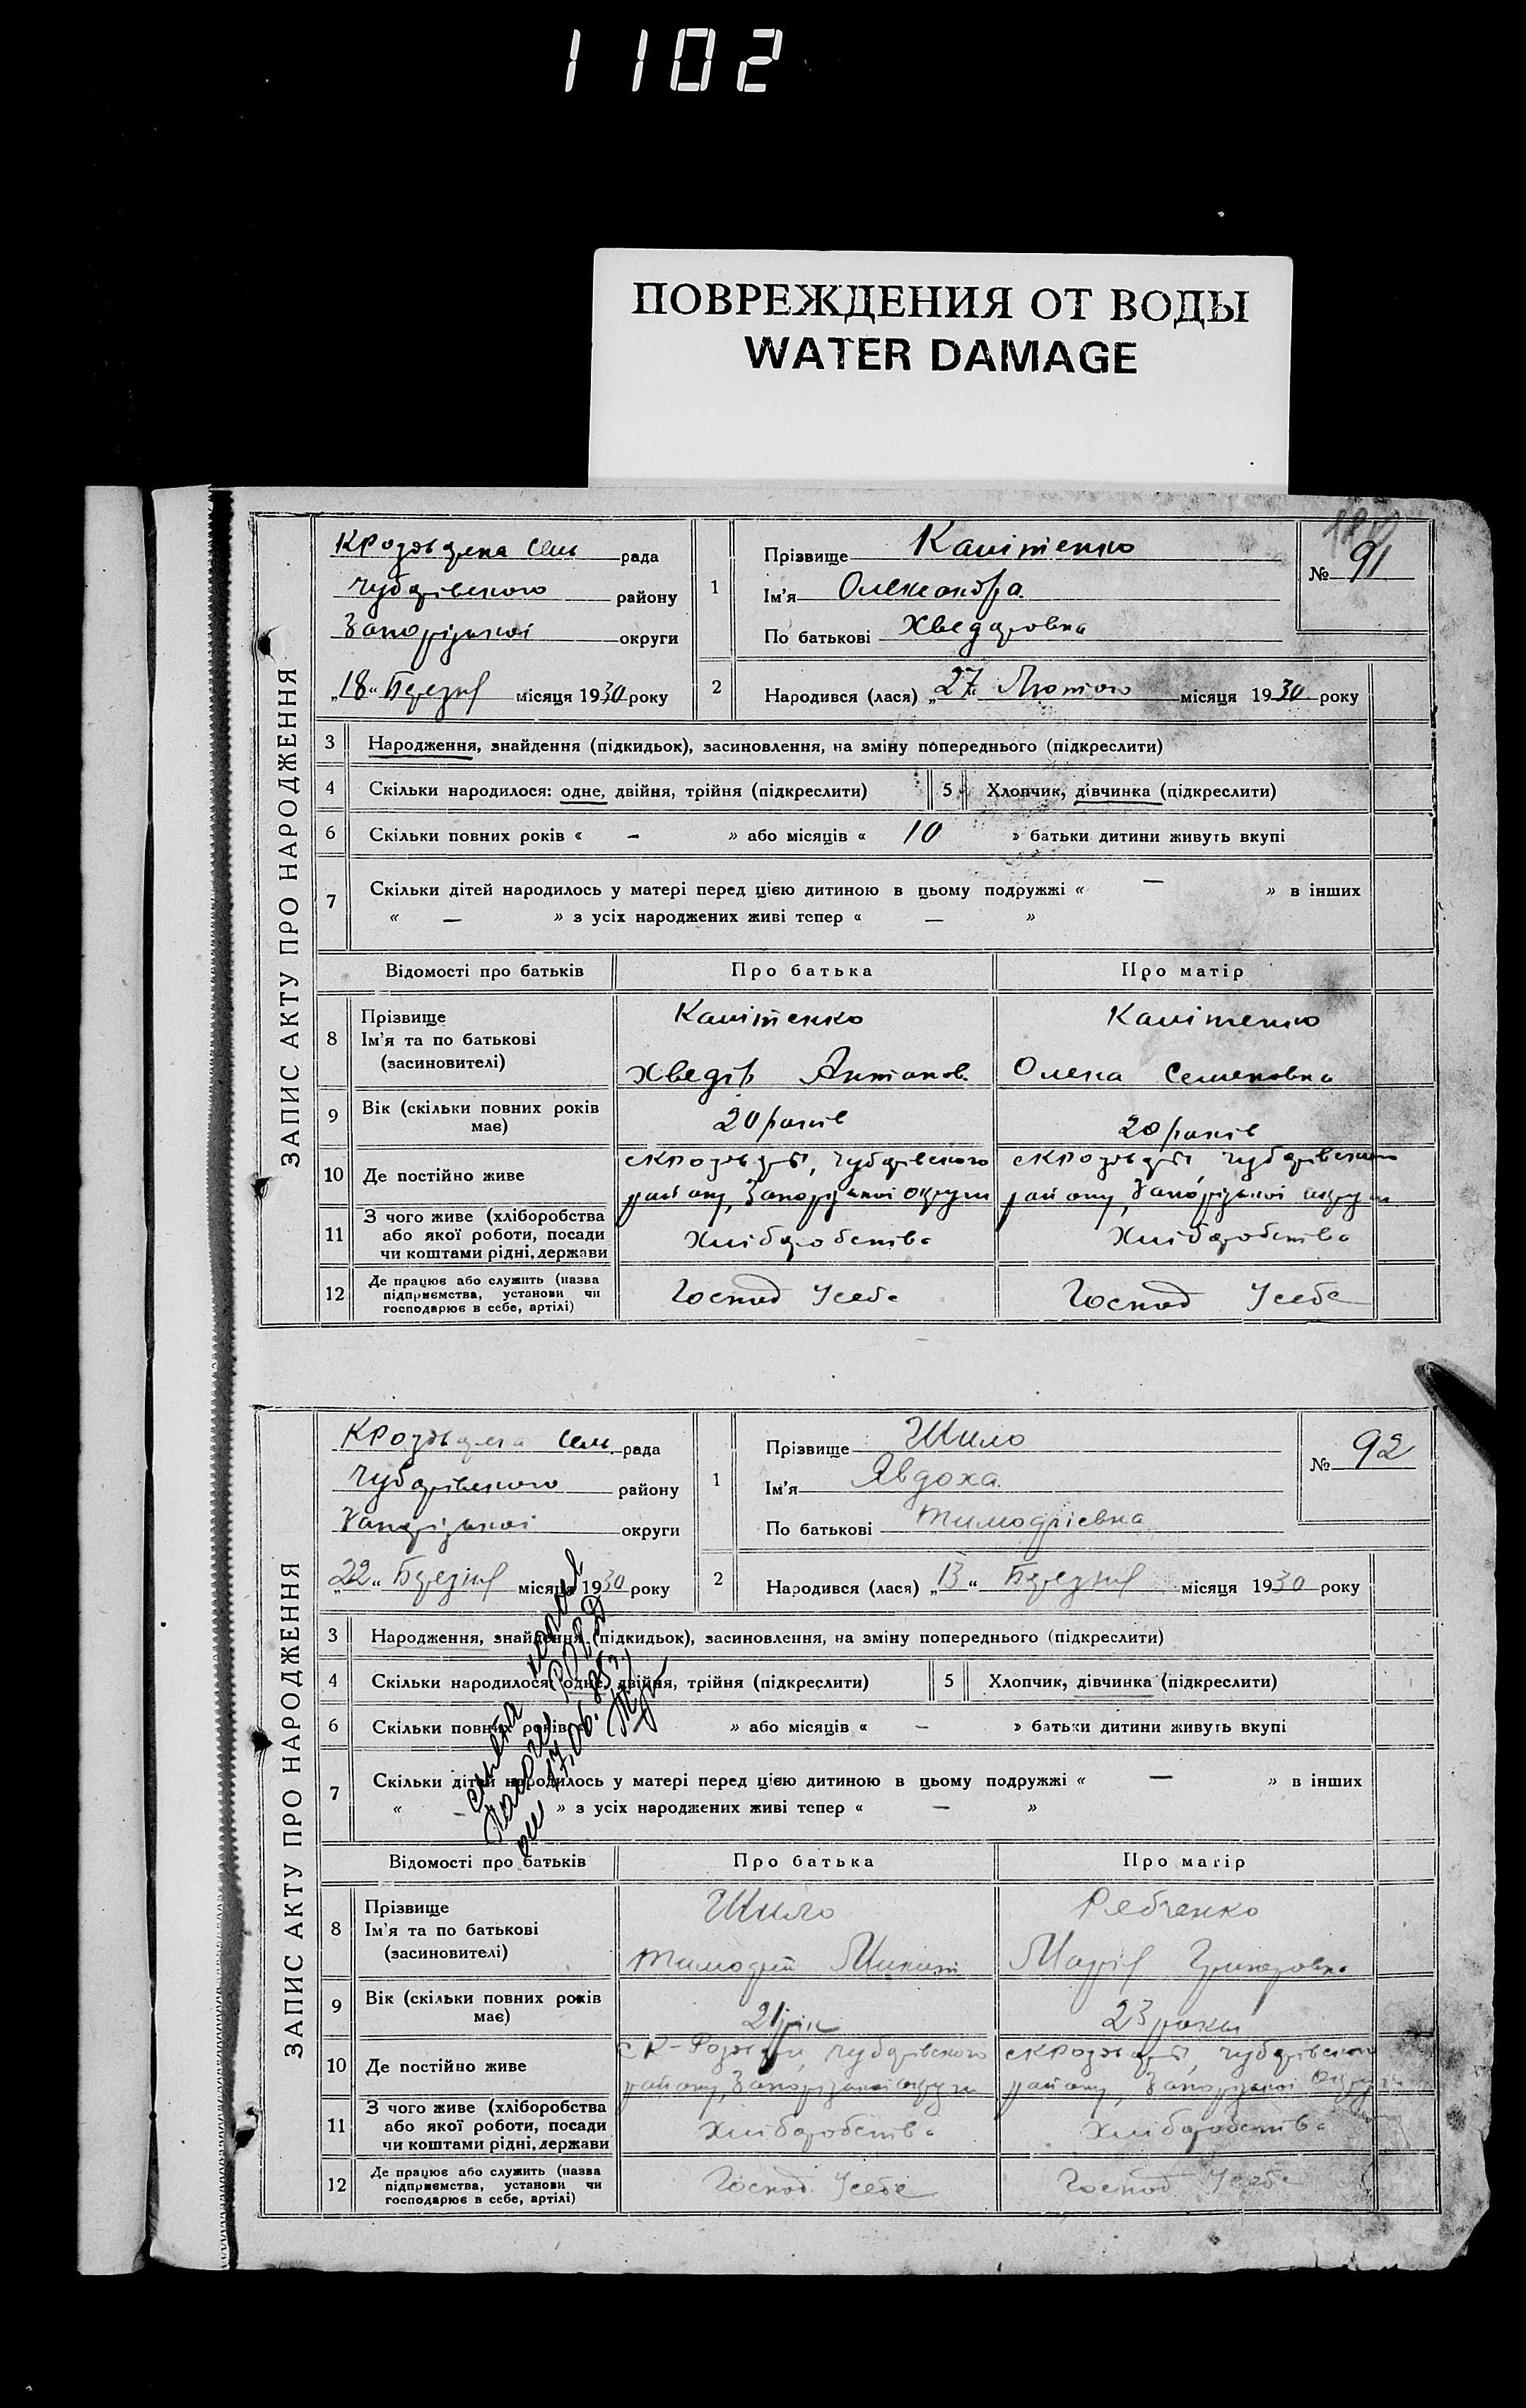 1102
ПОВРЕЖДЕНИЯ ОТ ВОДЫ
WATER DAMAGE
ЗАПИС АКТУ ПРО НАРОДЖЕННЯ
рада
Чубарівського району
Запорізької округи
„18“ Березня місяця 1930 року
1
Прізвище Капітенко
Ім'я Олександра
По батькові Хведоровна
№ 91
2
Народився (лася) „27“ Лютого місяця 1930 року
3 Народження, знайдення (підкидьок), засиновлення, на зміну попереднього (підкреслити)
4 Скільки народилося: одне, двійня, трійня (підкреслити) 5 Хлопчик, дівчинка (підкреслити)
6 Скільки повних років « – » або місяців « 10 » батьки дитини живуть вкупі
7 Скільки дітей народилось у матері перед цією дитиною в цьому подружжі « — » в інших
« — » з усіх народжених живі тепер « — »
Відомості про батьків Про батька Про матір
8 Прізвище
Ім'я та по батькові
(засновителі)
Капітенко Капітенко
Хведір Антонов. Олена Семеновна
9 Вік (скільки повних років має) 20 років 20 років
10 Де постійно живе
Чубарівського Чубарівського
району, Запорізької округи району, Запорізької округи
11 З чого живе (хліборобства
або якої роботи, посади
чи коштами рідні, держави
Хліборобства Хліборобства
12 Де працює або служить (назва
підприємства, установи чи
господарює в себе, артілі)
Господ Усебе Господ Усебе
ЗАПИС АКТУ ПРО НАРОДЖЕННЯ
рада
Чубарівського району
Запорізької округи
„22“ Березня місяця 1930 року
1
Прізвище Шило
Ім'я Явдоха
По батькові Тимофіевна
№ 92
2
Народився (лася) „13“ Березня місяця 1930 року
3 Народження, знайдення (підкидьок), засиновлення, на зміну попереднього (підкреслити)
4 Скільки народилося: одне, двійня, трійня (підкреслити) 5 Хлопчик, дівчинка (підкреслити)
6 Скільки повних років « » або місяців « – » батьки дитини живуть вкупі
7 Скільки дітей народилось у матері перед цією дитиною в цьому подружжі « — » в інших
« – » з усіх народжених живі тепер « — »
Відомості про батьків Про батька Про матір
8 Прізвище
Ім'я та по батькові
(засиновителі)
Шило Рябченко
Тимофій Микит Марія Григоровна
9 Вік (скільки повних років має) 21 рік 23 роки
10 Де постійно живе
Чубарівського Чубарівського
району, Запорізької округи району, Запорізької округи
11 З чого живе (хліборобства
або якої роботи, посади
чи коштами рідні, держави
Хліборобства Хліборобства
12 Де працює або служить (назва
підприємства, установи чи
господарює в себе, артілі)
Господ. Усебе Господ Усебе